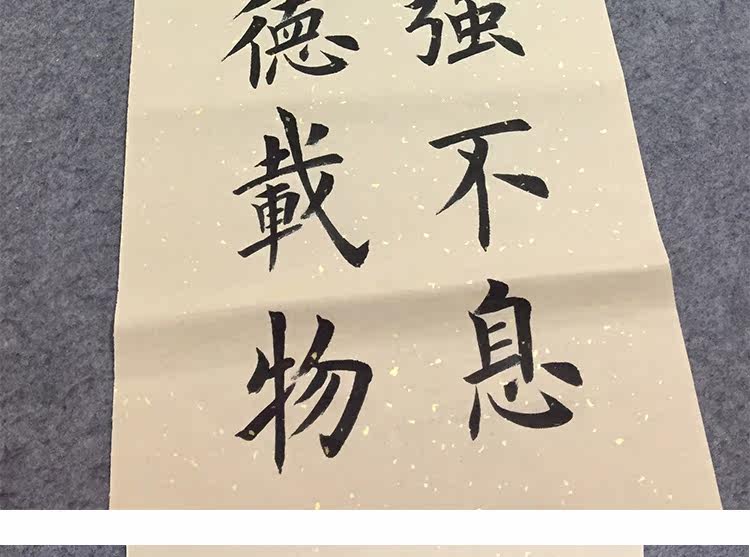 強不息
德載物